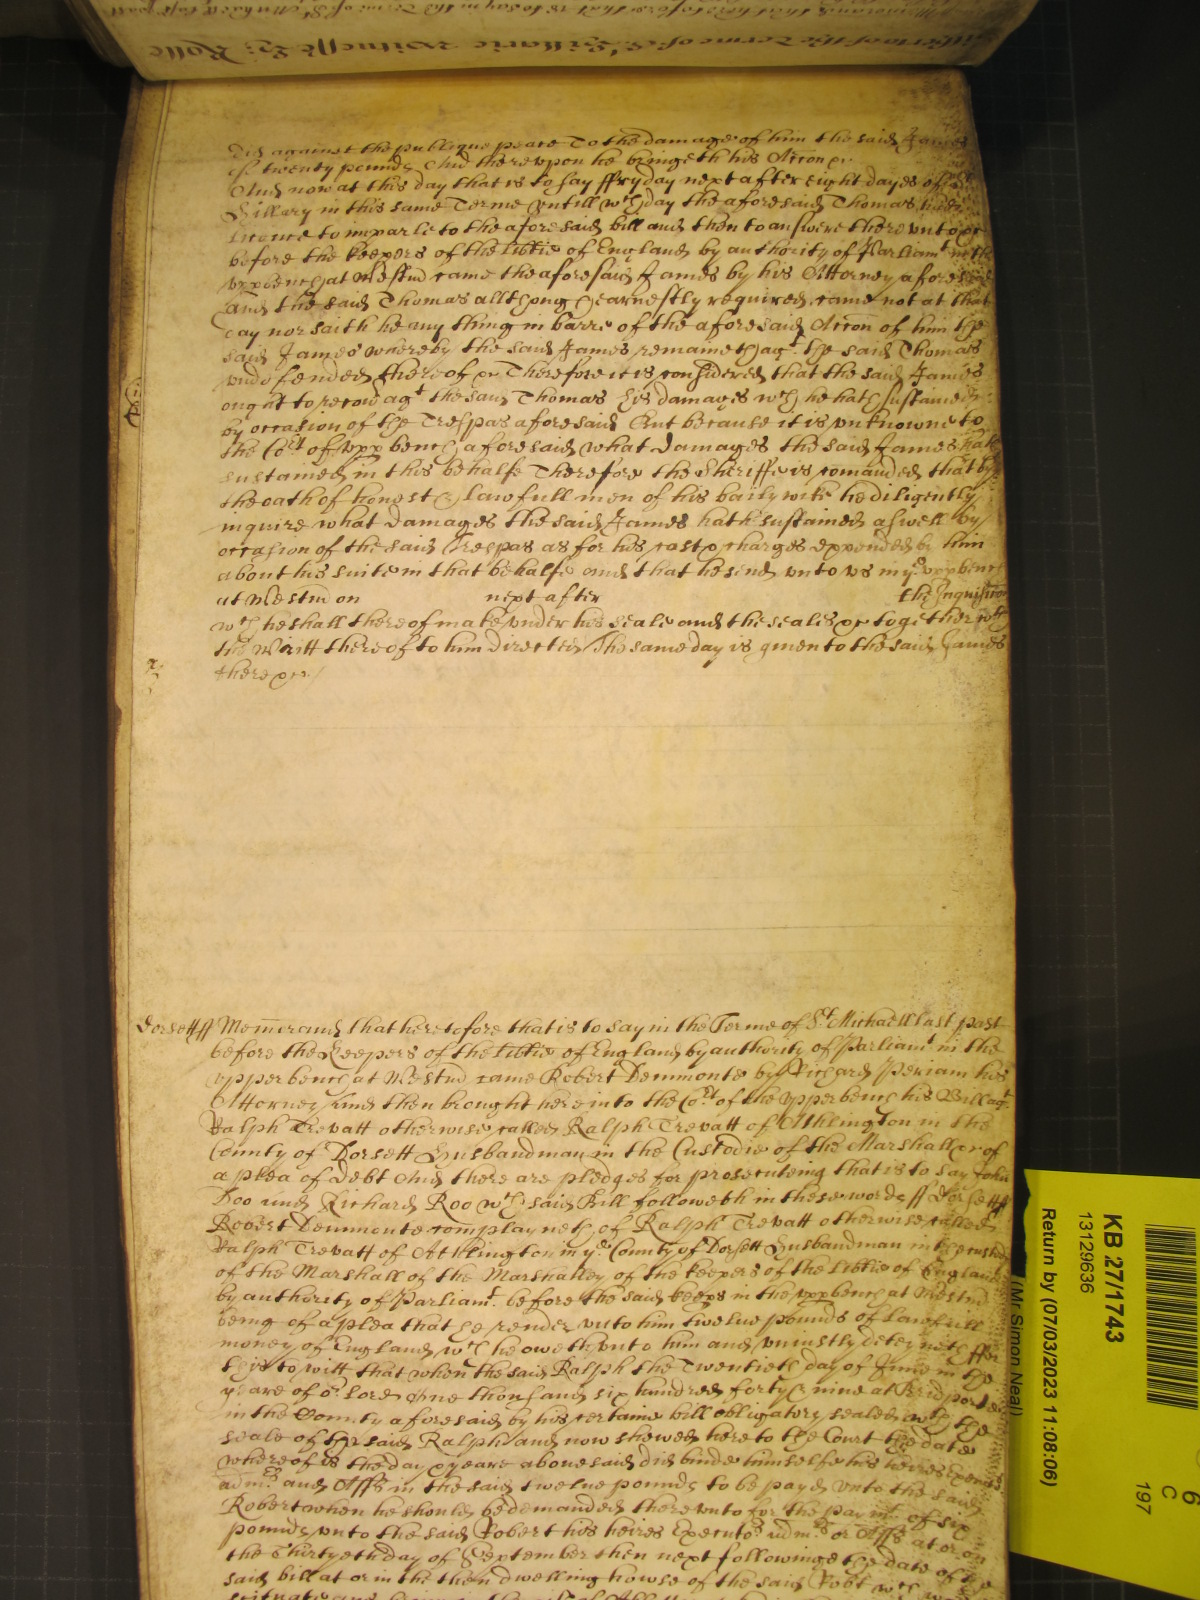 did against the publique peace To the damage of him the said James
of twenty pounds And thereupon he bringeth his Accon &c.
And now at this day that is to say ffryday next after eight dayes of St
Hillary in this same Terme untill wch day the aforesaid Thomas had
licence to imparle to the aforesaid bill and then to answere thereunto &c
before the keepers of the libtie of England by authority of Parliamt in the
uppbench at Westmr came the aforesaid James by his Attorney aforesaid
And the said Thomas allthough earnestly required came not at that
day nor saith he any thing in barre of the aforesaid Accon of him the
said James whereby the said James remaineth agt the said Thomas
undefended thereof &c Therefore it is considered that the said James
ought to recov agt the said Thomas his damages wch he hath sustained
by occasion of the Trespas aforesaid But because it is unknowne to
the Cort of upp bench aforesaid what damages the said James hath
sustained in this behalfe Therefore the Sheriffe is comanded that by
the oath of honest & lawfull men of his bailywike he diligently
inquire what damages the said James hath sustained aswell by
occasion of the said Trespas as for his costs & charges expended by him
about his suite in that behalfe and that he send unto us in ye upp bench
at Westmr on next after the Inquisicon
wch he shall thereof make under his seale and the seales &c together wth
the Writt thereof to him directed The same day is given to the said James
there &c
Dorsett ss Memorand that heretofore that is to say in the Terme of St Michaell last past
before the Keepers of the libtie of England by authority of Parliamt in the
upper bench at Westmr came Robert Demmonte by Richard Periam his
Attorney And then brought here into the Cort of the upper bench his Bill agt
Ralph Trevatt otherwise called Ralph Trevatt of Athlington in the
County of Dorsett Husbandman in the Custodie of the Marshall &c of
a plea of Debt And there are pledges for prosecuteing that is to say John
Doo and Richard Roo wch said Bill followeth in these words ss Dorsett ss
Robert Demmonte complayneth of Ralph Trevatt otherwise called
Ralph Trevatt of Athlington in ye County of Dorsett Husbandman in the custody
of the Marshall of the Marshalsey of the keepers of the libtie of England
by authority of Parliamt before the said keeps in the upp bench at Westmr
being of a plea that he render unto him twelve pounds of lawfull
money of England wch he oweth unto him and uniustly deteyneth ffor
that is to witt that when the said Ralph the Twentieth day of June in the
yeare of or Lord One thousand six hundred forty & nine at Bridport
in the County aforesaid by his certaine bill obligatory sealed wth the
seale of the said Ralph and now shewed here to the Court the date
whereof is the day & yeare abovesaid did binde himselfe his heires Execs
admrs and Asss in the said twelve pounds to be payd unto the said
Robert when he should be demanded thereunto for the paymt of six
pounds unto the said Robert his heires Executors admrs or Asss at or on
the Thirtyeth day of September then next followinge the date of the
said bill at or in the then dwelling howse of the said Robt wch
KB 27/1743
13129636
(Mr Simon Neal)
Return by (07/03/2023 11:08:06)
6
C
197